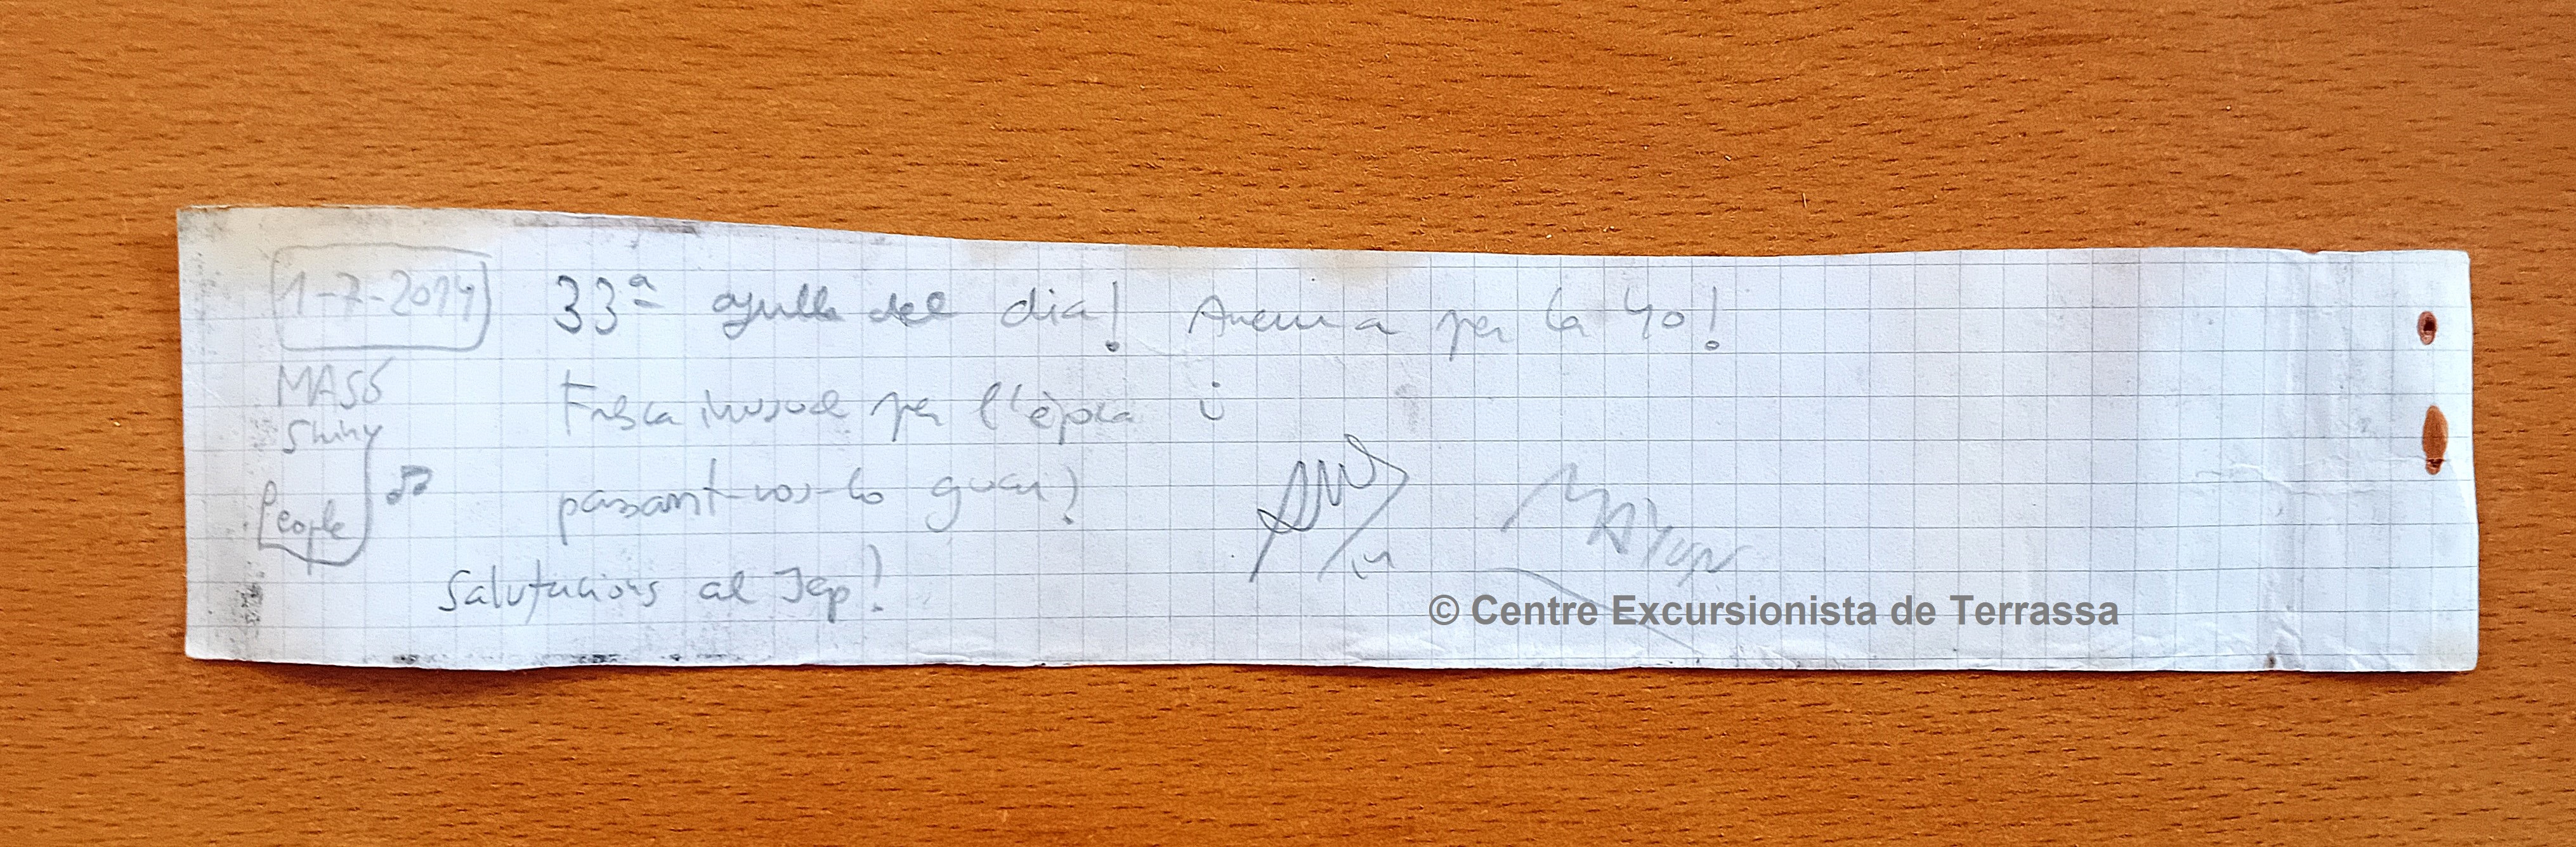 1-7-2014
33ª agulla del dia! Anem a per la 40!
MASS
Shiny
People
Fresca inusual per l'època i
passant-nos-ho guai!
Salutacions al Jep!
© Centre Excursionista de Terrassa